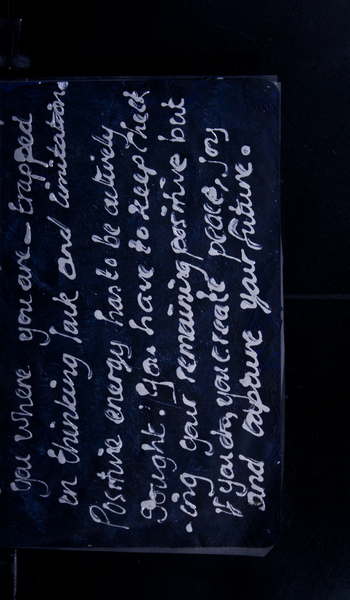 you where you are - trapped
in thinking lack and limitations
Positive energy has to be actively
sought! You have to keep check
-ing your remaining positive but
if you do, you create peace, joy
and capture your future.